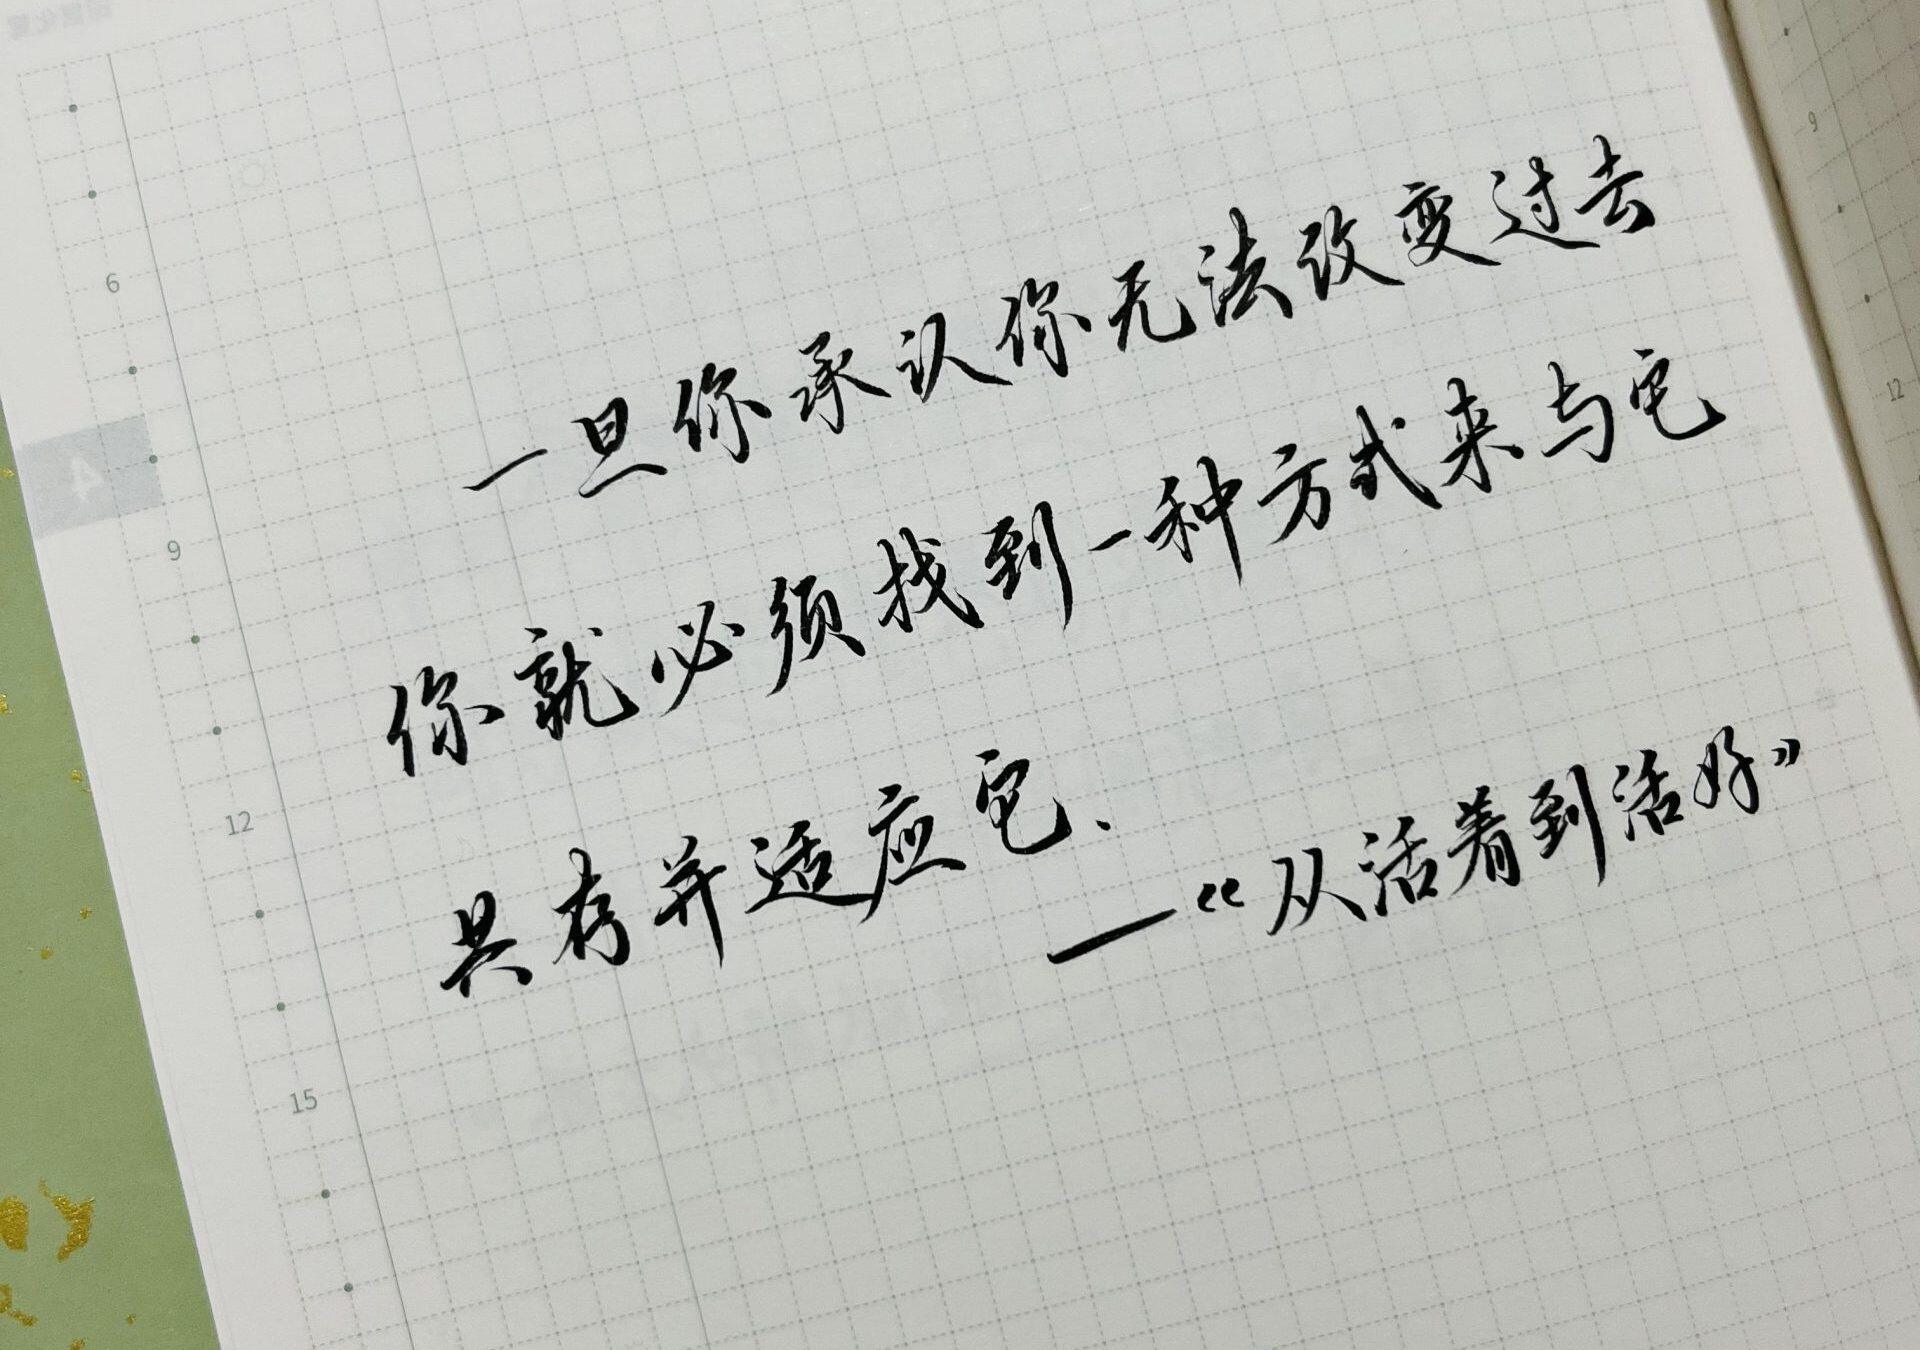 一旦你承认你无法改变过去
你就必须找到一种方式来与它
共存并适应它.
—《从活着到活好》
6
9
12
15
4
9
12